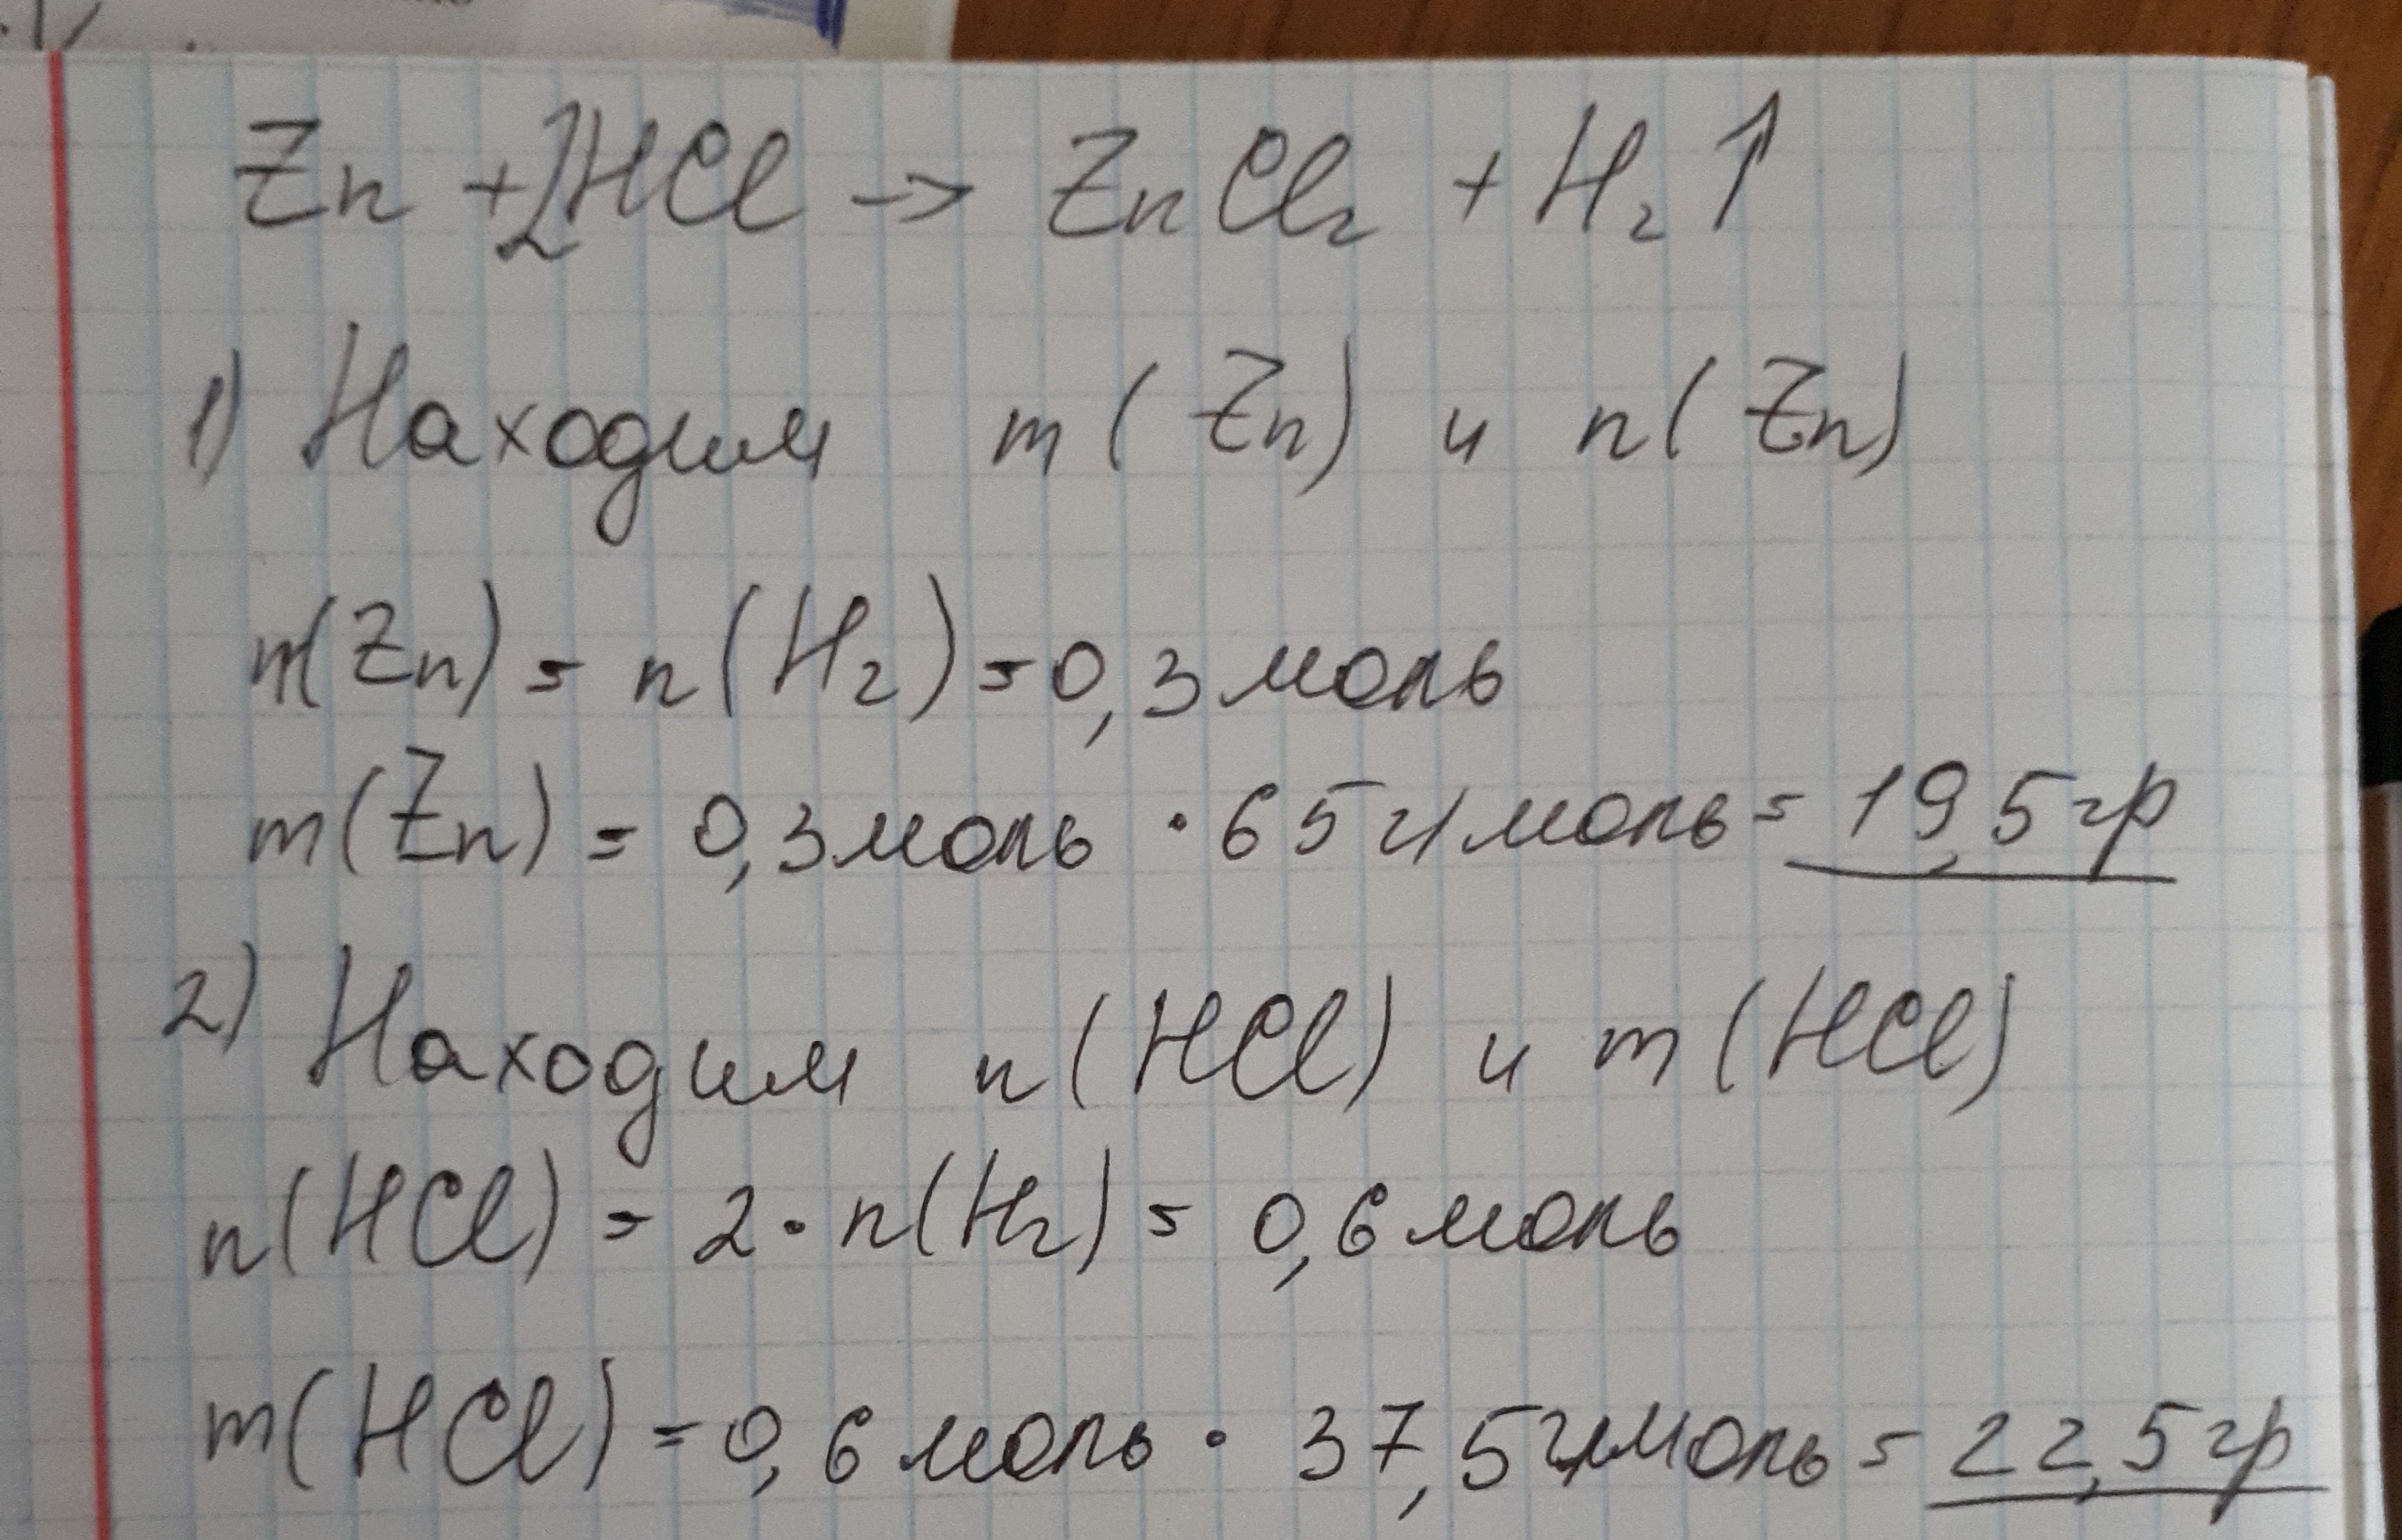 Zn + 2HCl → ZnCl₂ + H₂↑
1) Находим m(Zn) и n(Zn)
n(Zn) = n(H₂) = 0,3 моль
m(Zn) = 0,3 моль · 65 г/моль = 19,5 гр
2) Находим n(HCl) и m(HCl)
n(HCl) = 2 · n(H₂) = 0,6 моль
m(HCl) = 0,6 моль · 37,5 г/моль = 22,5 гр